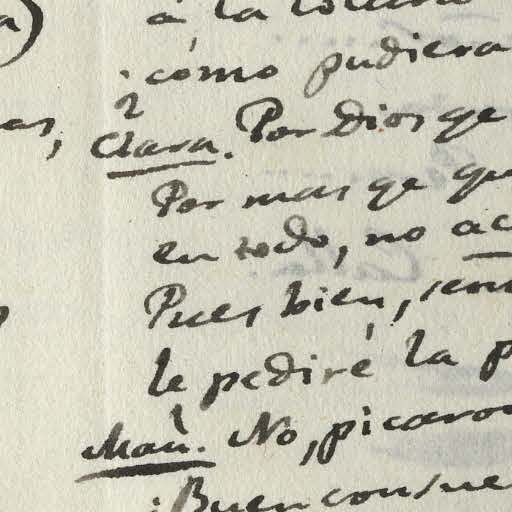 a)
á la
¿cómo pudiera
as,
Clara. Por Dios qe
Por mas qe qu
en todo, no ac
Pues bien, señ
le pediré la p
Man. No, picaro
¡Buen consue